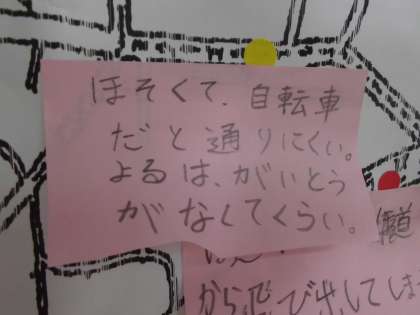 ほそくて、自転車
だと通りにくい。
よるは、がいとう
がなくてくらい。
から飛び出してしま